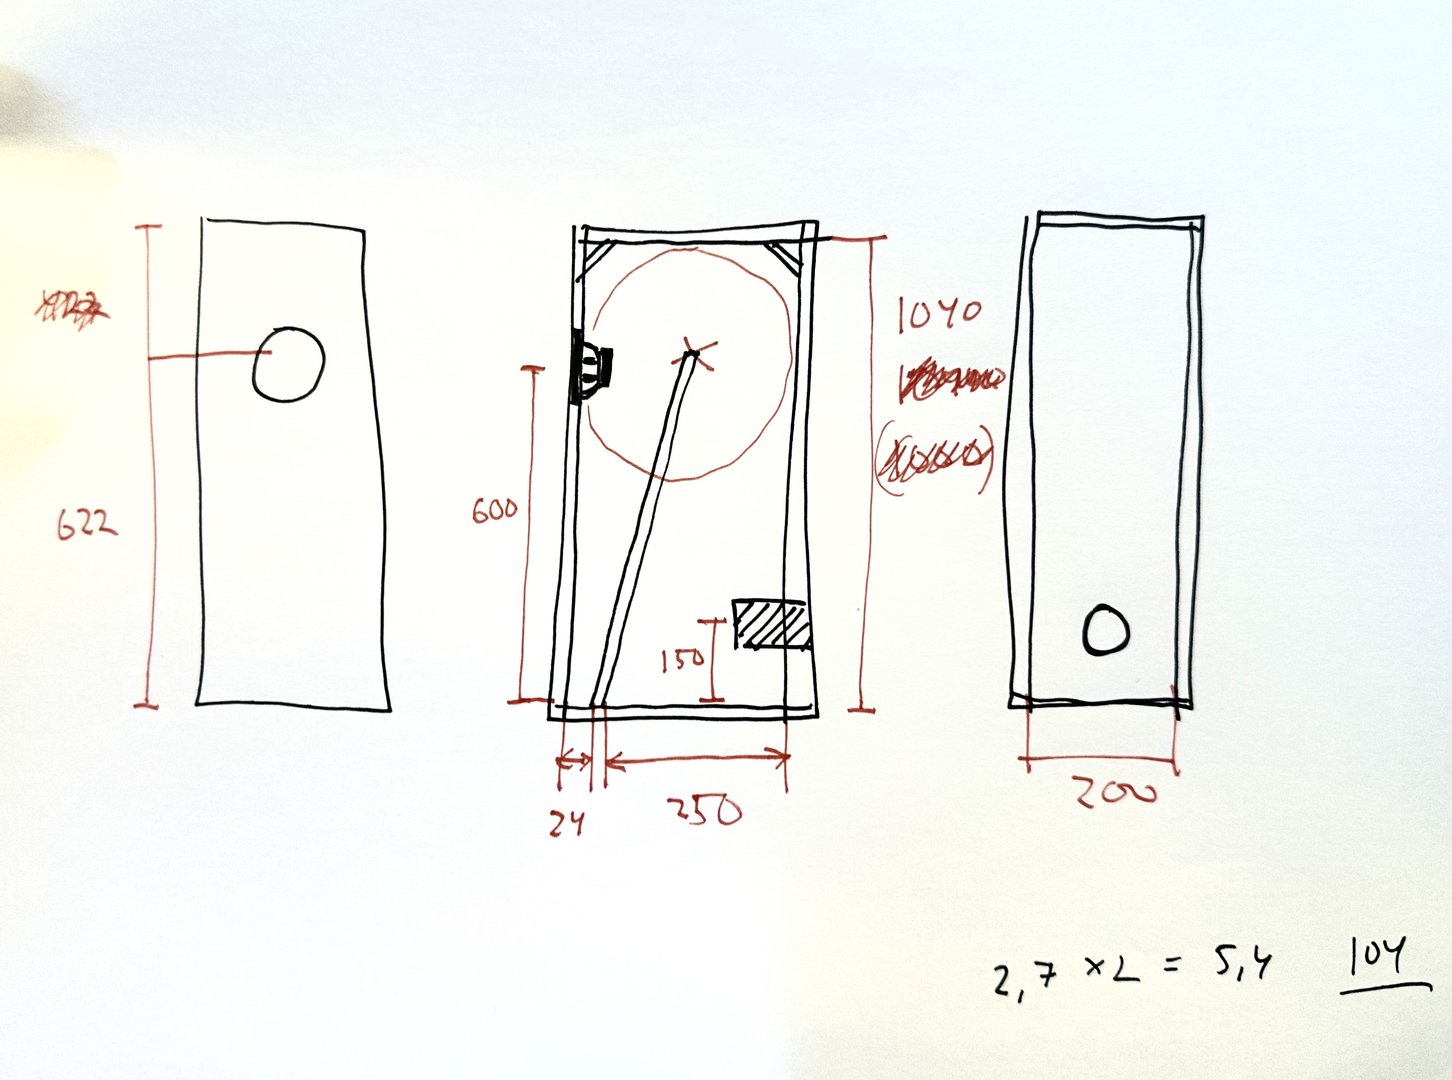 622
600
150
24
250
1040
200
2,7 × 2 = 5,4
104